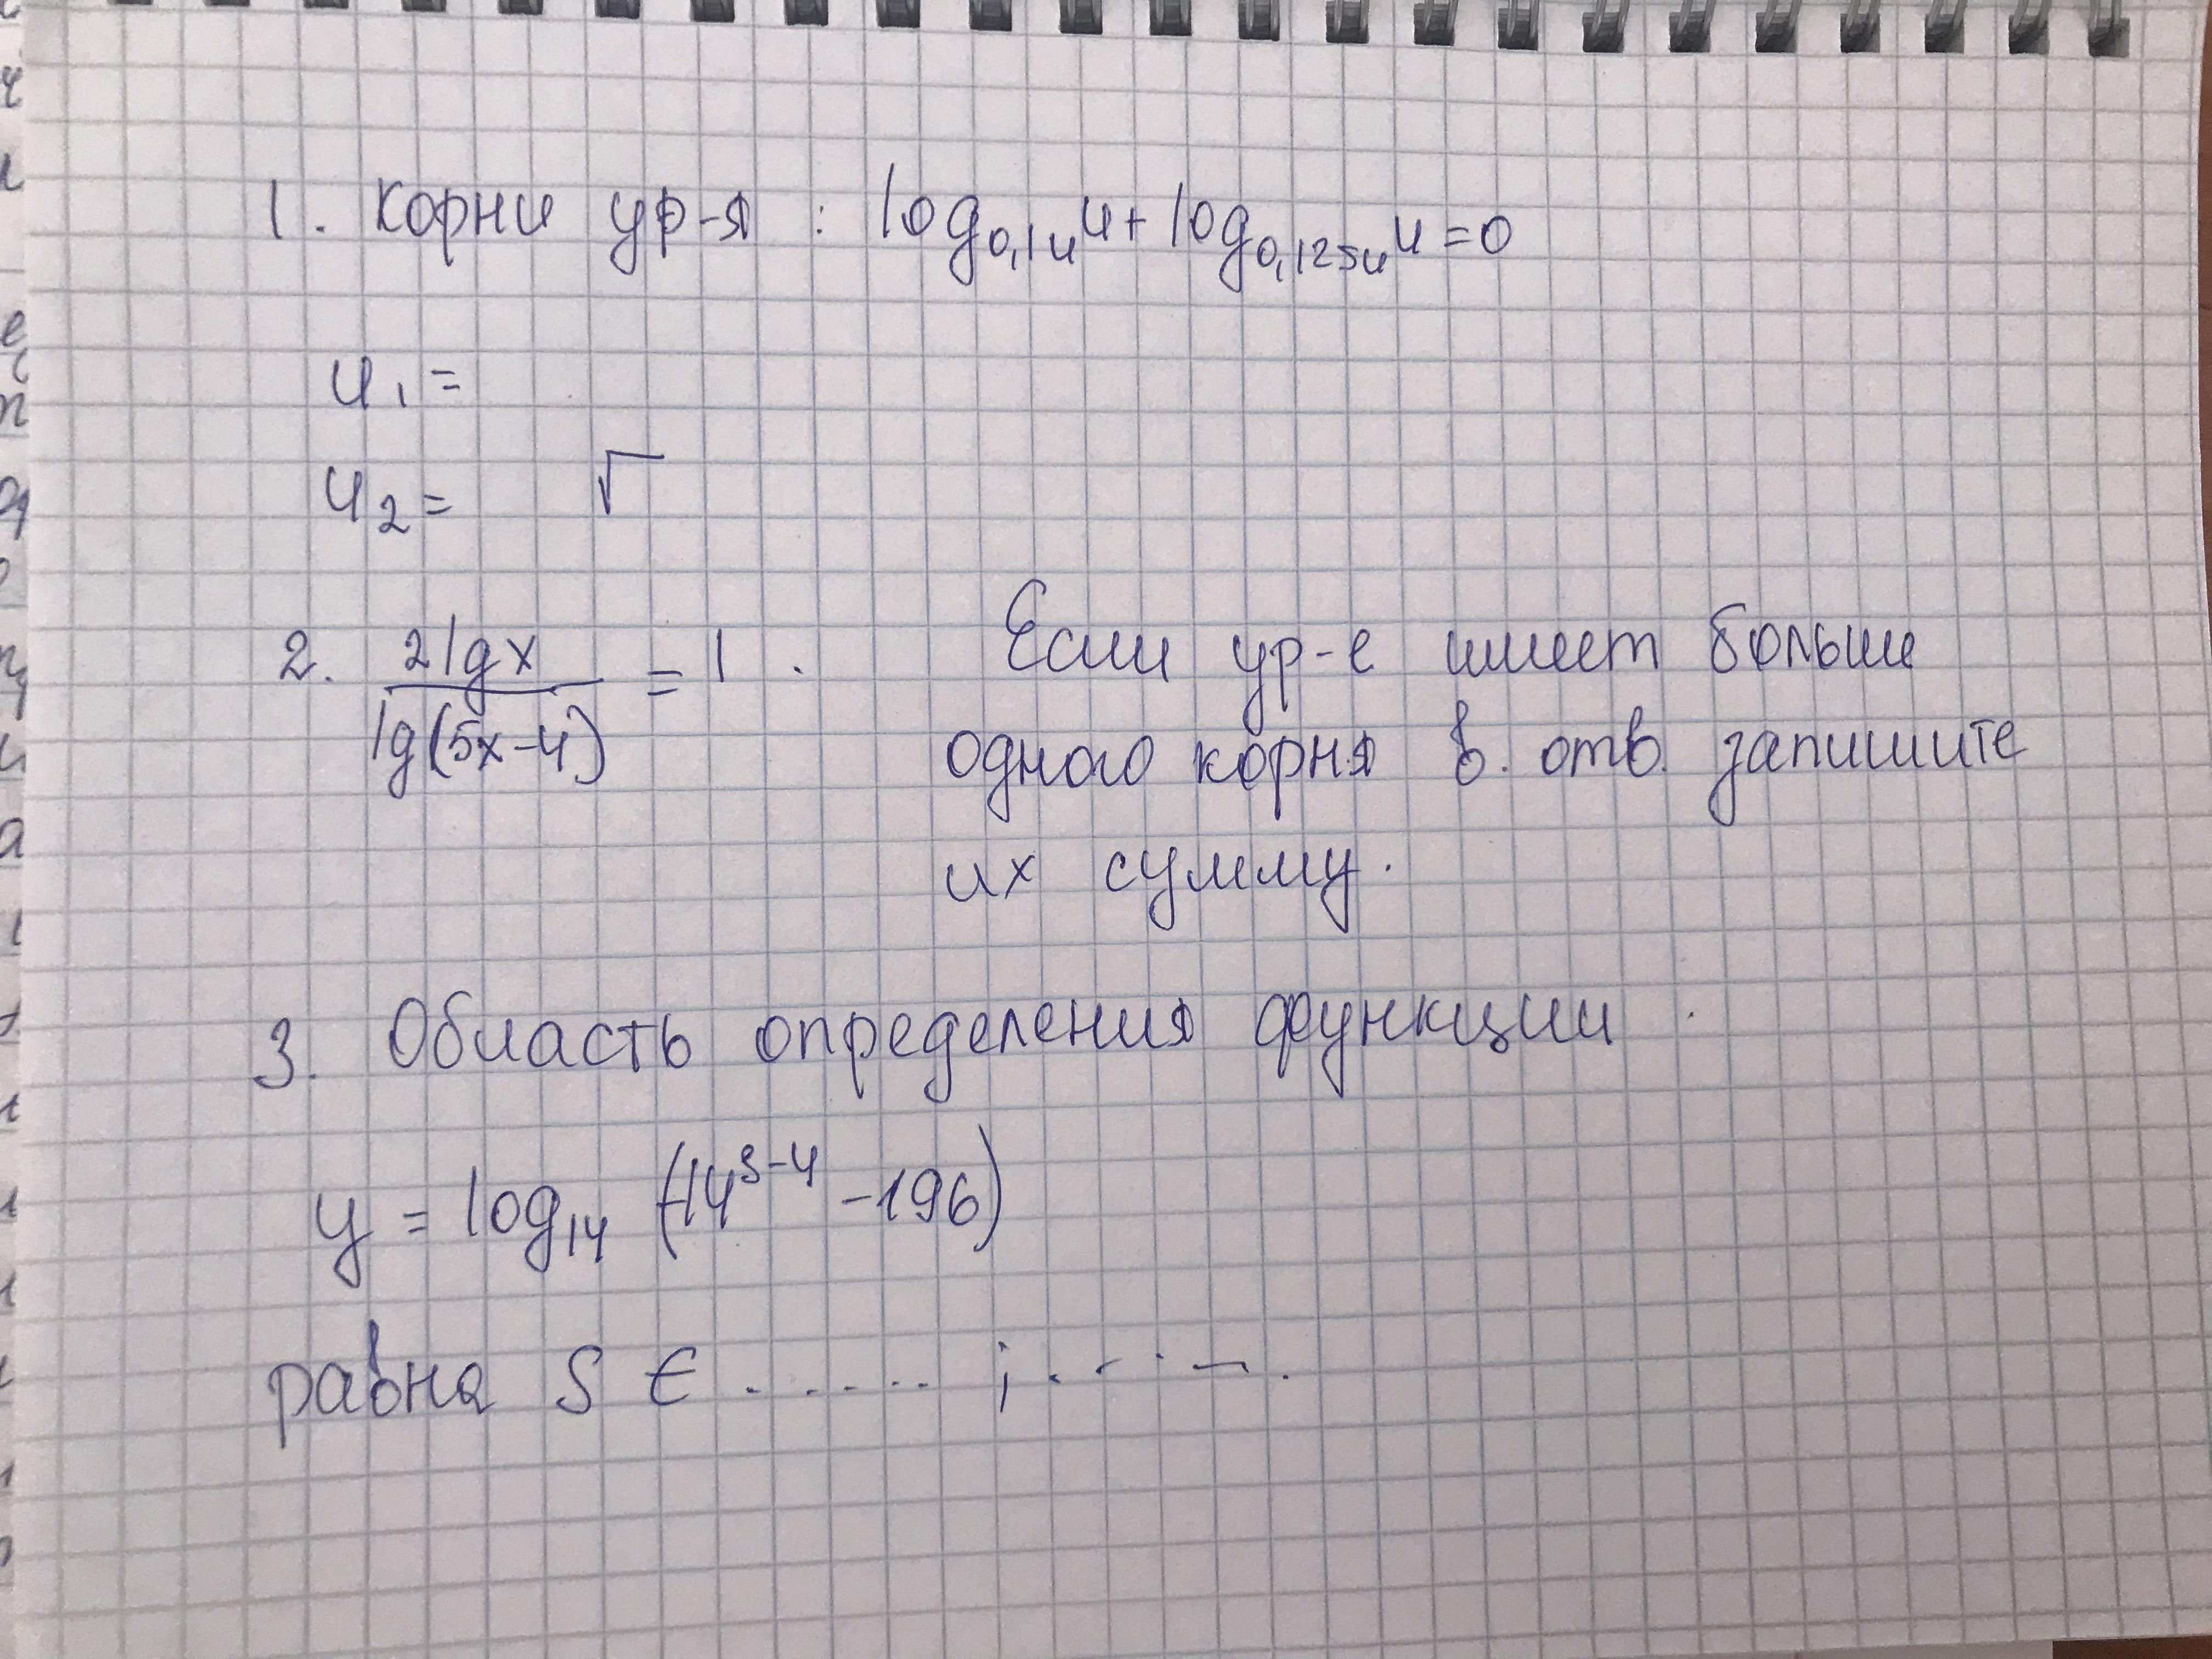 1. Корни ур-я : log₀,₁ᵤu + log₀,₁₂₅ᵤu = 0
u₁ =
u₂ = √
2. 2lgx / lg(5x-4) = 1 . Если ур-е имеет больше
одного корня в. отв. запишите
их сумму.
3. Область определения функции .
y = log₁₄ (14ˢ⁻⁴ - 196)
равна S ∈ ...... ; ......